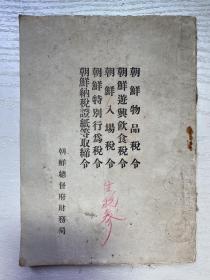 朝鮮物品税令
朝鮮遊興飲食税令
朝鮮入場税令
朝鮮特別行為税令
朝鮮納税證紙等取締令
朝鮮總督府財務局